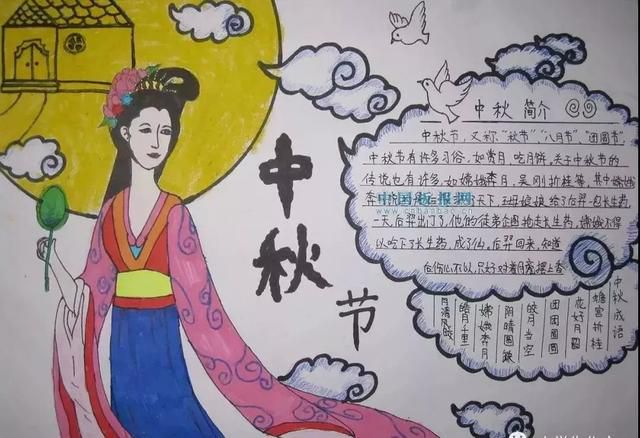 中秋节
中秋简介
中秋节,又称"秋节""八月节","团圆节",
中秋节有许多习俗,如赏月,吃月饼,关于中秋节的
传说也有许多,如嫦娥奔月,吴刚折桂等,其中嫦娥
天下,王母娘娘给了后羿一包长生药
一天后羿出门了,他的徒弟企图抢走长生药,嫦娥不得
以吃下了长生药,成了仙,后羿回来,知道
后伤心不以,只好对着
中国板报网
中秋成语
蟾宫折桂
花好月圆
团团圆圆
皎月当空
阴晴圆缺
嫦娥奔月
皓月千里
月清风